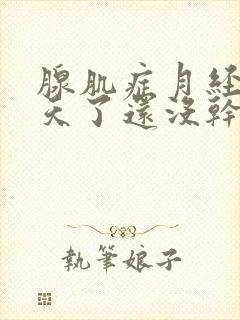 腺肌症月經
天了還沒幹
執筆娘子